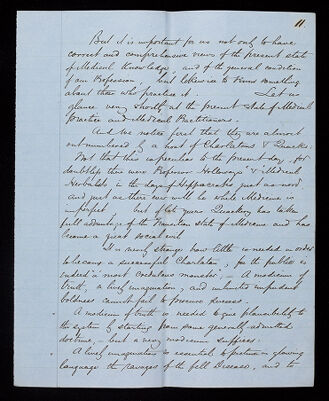 11.
But it is important for us not only to have
correct and comprehensive views of the present state
of Medical Knowledge, and of the general condition
of our Profession but likewise to know something
about those who practise it. Let us
glance very shortly at the present state of Medical
practice and Medical Practitioners.
And we notice first that they are almost
outnumbered by a host of Charlatans & Quacks.
Not that this is peculiar to the present day, for
doubtless there were Professor Holloways & Medical
Herbalists in the days of Hippocrates just as now,
and just as there ever will be while Medicine is
imperfect, but of late years Quackery has taken
full advantage of the transition state of medicine and has
become a great social evil.
It is very strange how little is needed in order
to become a successful Charlatan, for the public is
indeed "a most credulous monster", – A modicum of
truth, a lively imagination, and unlimited impudent
boldness cannot fail to procure success.
A modicum of truth is needed to give plausibility to
the system by starting from some generally admitted
doctrine, but a very modicum suffices.
A lively imagination is essential to picture in glowing
language the ravages of the fell Disease, and to